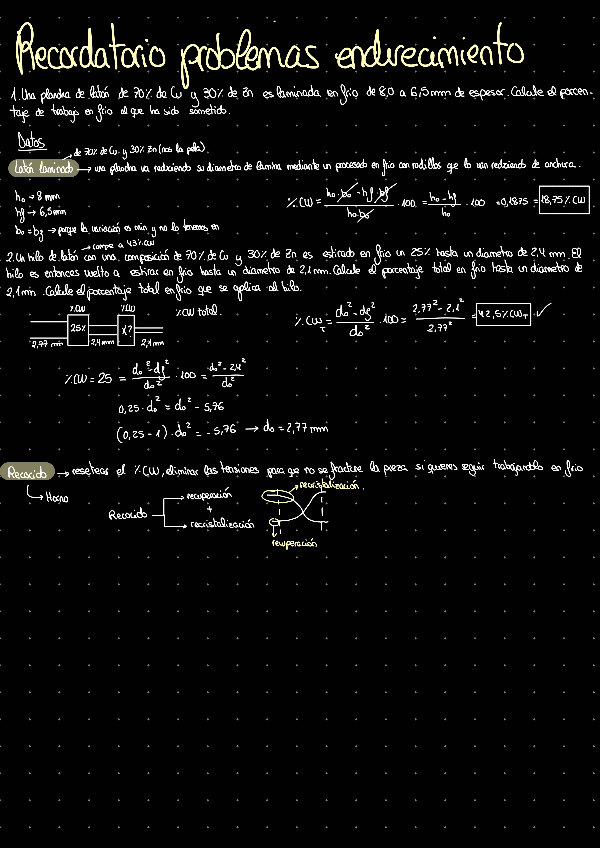 Recordatorio problemas endurecimiento
1. Una plancha de latón de 70% de Cu y 30% de Zn es laminada en frío de 8,0 a 6,5 mm de espesor. Calcule el porcen-
taje de trabajo en frío al que ha sido sometido.
Datos
de 70% de Cu y 30% Zn (nos la pela).
Latón laminado → una plancha va reduciendo su diametro de lámina mediante un procesado en frío con rodillos que lo van reduciendo de anchura.
h₀ → 8 mm
hf → 6,5 mm
b₀ = bf → porque la variación es min y no lo tenemos en
%CW = (h₀·b₀ - hf·bf)/(h₀·b₀) · 100 = (h₀ - hf)/h₀ · 100 = 0,1875 = 18,75% CW
→ compe a 43% CW
2. Un hilo de latón con una composición de 70% de Cu y 30% de Zn es estirado en frío un 25% hasta un diametro de 2,4 mm. El
hilo es entonces vuelto a estirar en frío hasta un diametro de 2,1 mm. Calcule el porcentaje total en frío hasta un diametro de
2,1 mm. Calcule el porcentaje total en frío que se aplica al hilo.
%CW %CW %CW total.
25% x?
2,77 mm 2,4 mm 2,1 mm
%CW_T = (d₀² - df²)/d₀² · 100 = (2,77² - 2,1²)/2,77² = 42,5% CW_T ✓
%CW = 25 = (d₀² - df²)/d₀² · 100 = (d₀² - 2,4²)/d₀²
0,25 · d₀² = d₀² - 5,76
(0,25 - 1) · d₀² = -5,76 → d₀ = 2,77 mm
Recocido → resetear el %CW, eliminar las tensiones para que no se fracture la pieza si quieres seguir trabajandolo en frío
→ Horno
recristalización.
Recocido → recuperación
+
→ recristalización
recuperación